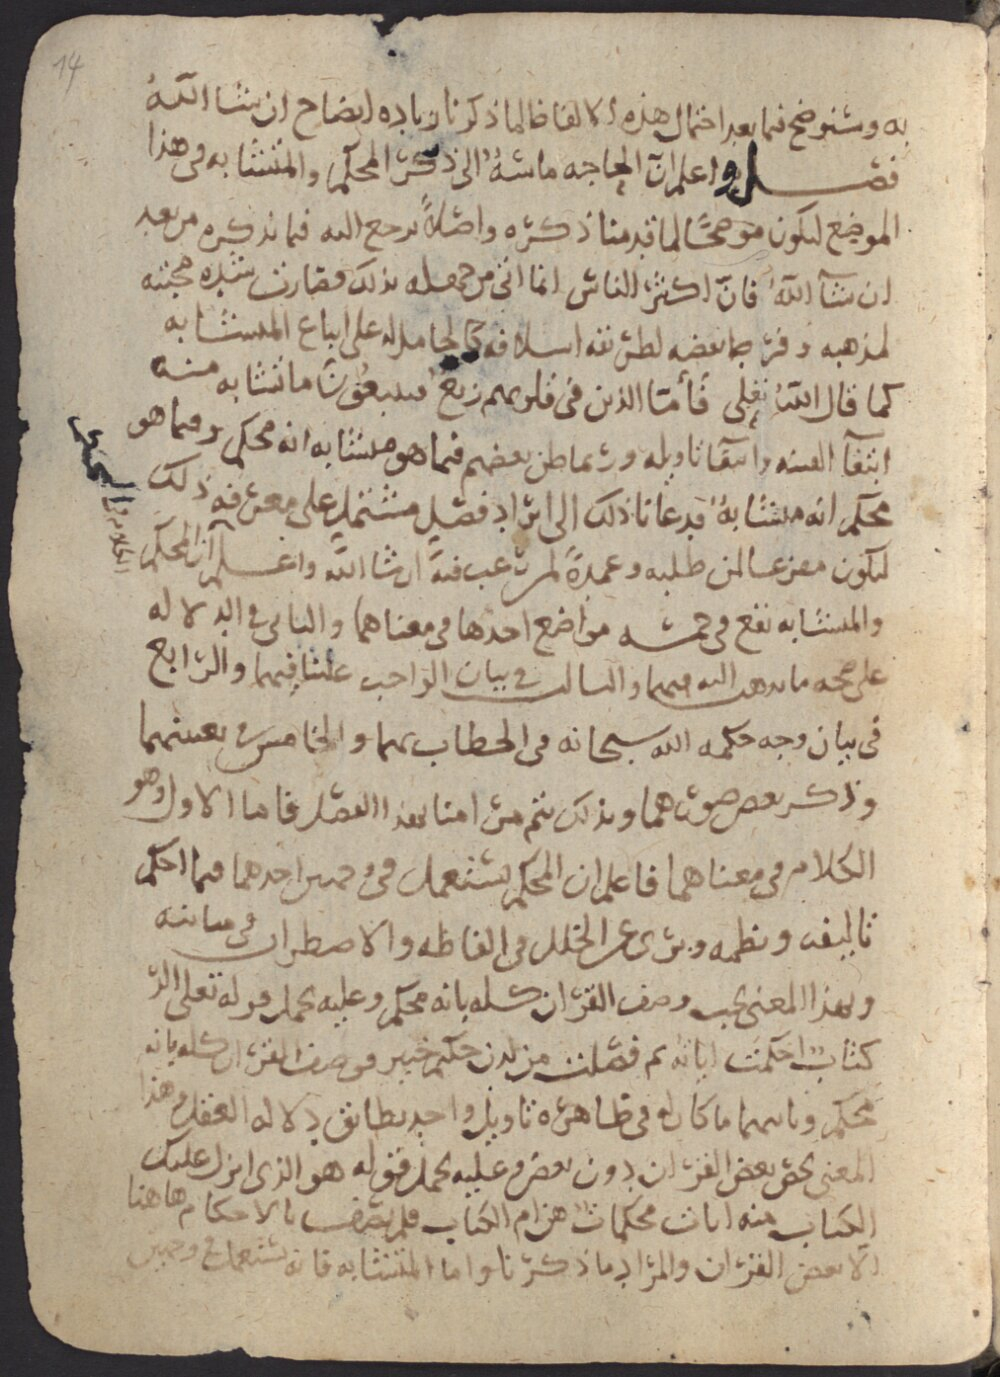 14
به وسنوضح فيما بعد احتمال هذه الالفاظ لما ذكرنا زياده ايضاح ان شا اللّٰه
فصل واعلم ان الحاجه ماسّهٌ الى ذكر المحكم والمتشابه في هذا
الموضع ليكون موضحًا لما قدمنا ذكره واصلاً نرجع اليه فيما نذكره من بعد
ان شآ اللّٰه فانّ اكثر الناس انما اتى من جهله بذلك فصارت شده محبته
لمذهبه و لطريقه اسلافه كالحامل له على اتباع المتشابه
كما قال اللّٰه تعلى فأمّا الذين في قلوبهم زيغ فيتبعون ما تشابه منه
ابتغآ الفتنه وابتغآ تاويله وربما ظن بعضهم فيما هو متشابه انه محكم وفيما هو
محكم انه متشابهٌ فدعانا ذلك الى ايراد فصل مشتمل على معرفه ذلك
ليكون مفزعا لمن طلبه وعمدةً لمن رغب فيه ان شا اللّٰه واعلم آن المحكم
والمتشابه يقع في خمسه مواضع احدها في معناهما والثاني في الدلاله
على صحه ما نذهب اليه فيهما والثالث في بيان الواجب علينا فيهما والرابع
في بيان وجه حكمه الله سبحانه في الخطاب بهما والخامس في تعيينهما
وذكر بعض صورهما وبذلك يتم مرامنا بهذا الفصل فاما الاول وهو
الكلام في معناهما فاعلم ان المحكم يستعمل في وجهين احدهما فيما احكم
تاليفه ونظمه وبرى عن الخلل في الفاظه والاضطراب في معانيه
وبهذا المعنى يجب وصف القران كله بانه محكم وعليه يحمل قوله تعلى الر
كتابٌ احكمت اياته ثم فصلت من لدن حكيم خبير فوصف القران كله بانه
محكم وثانيهما ما كان له في ظاهره تاويل واحد يطابق دلاله العقل وهذا
المعنى يخص بعض القران دون بعض وعليه يحمل قوله هو الذي انزل عليك
الكتاب منه ايات محكماتٌ هن ام الكتاب فلم يصف بالاحكام هاهنا
الا بعض القران والمراد ما ذكرنا واما المتشابه فانه يستعمل في وجهين